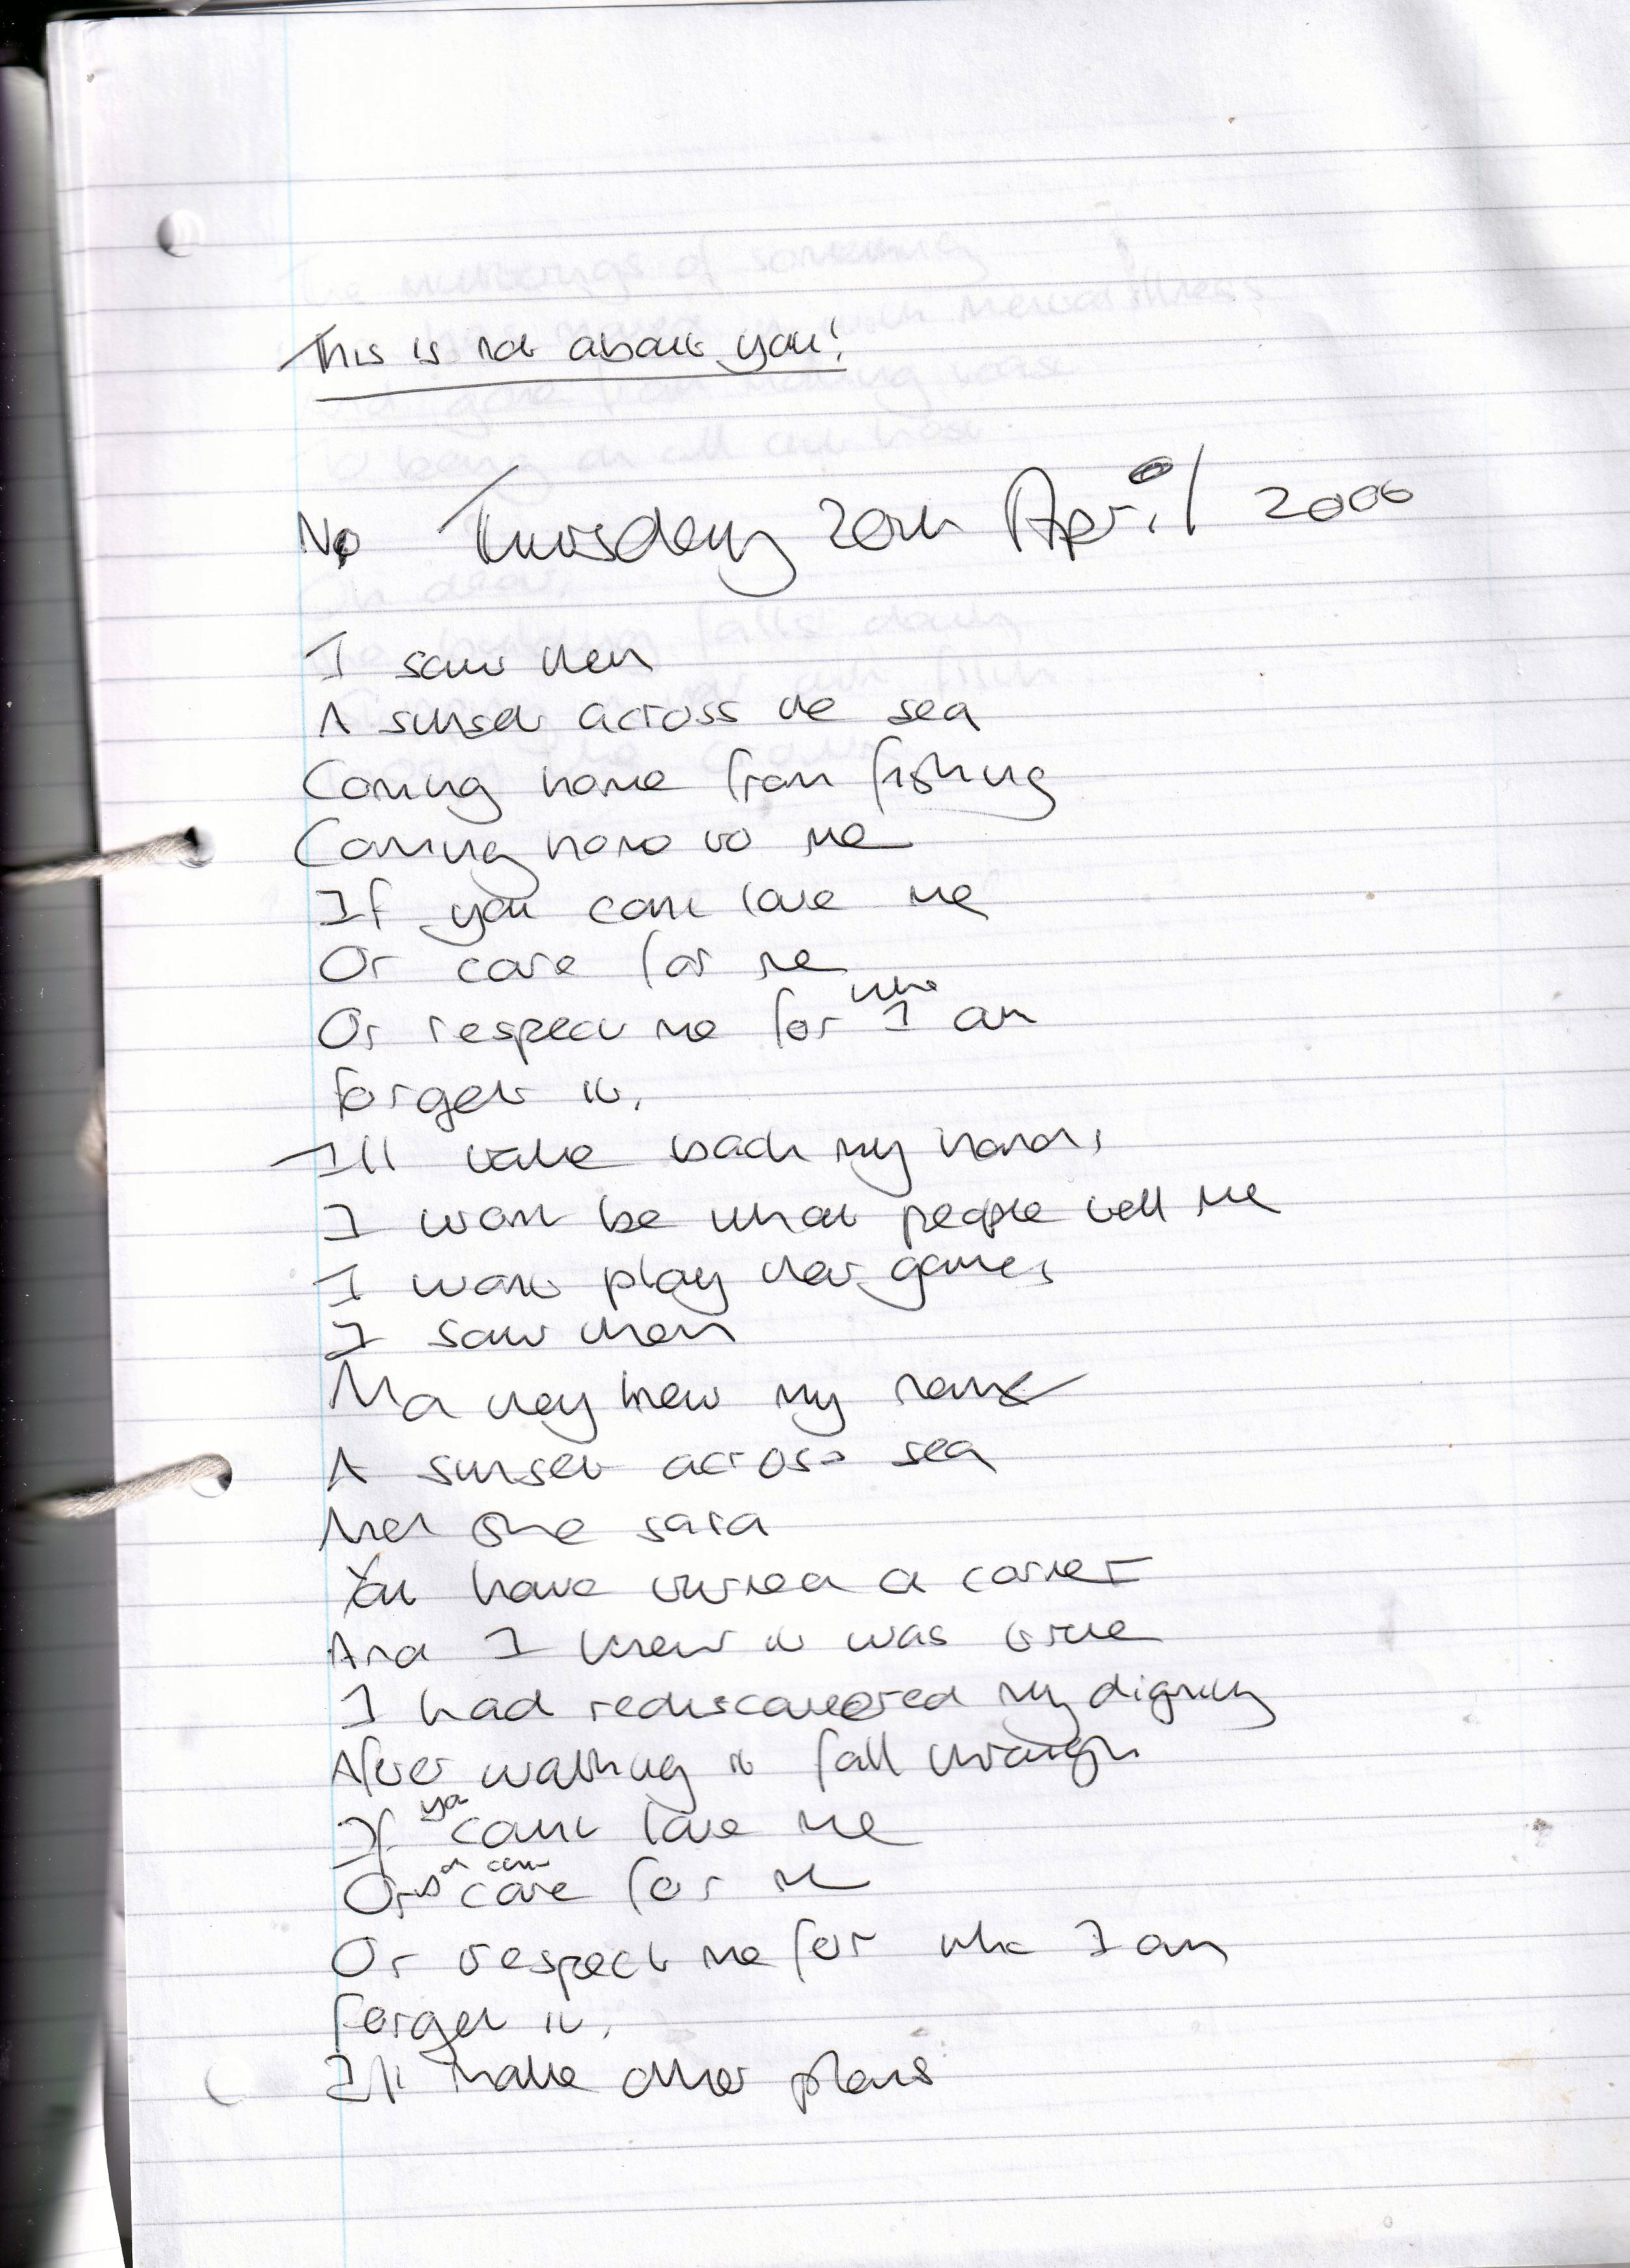 This is not about you!
No Thursday 20th April 2006
I saw then
A sunset across the sea
Coming home from fishing
Coming home to me
If you cant love me
Or care for me
Or respect me for who I am
Forget it,
Ill take back my hand,
I wont be what people tell me
I wont play their games,
I saw them
they knew my name
A sunset across sea
she said
You have turned a corner
And I knew it was true
I had rediscovered my dignity
After watching it fall through
If you cant love me
Or care for me
Or respect me for who I am
Forget it,
Ill make other plans